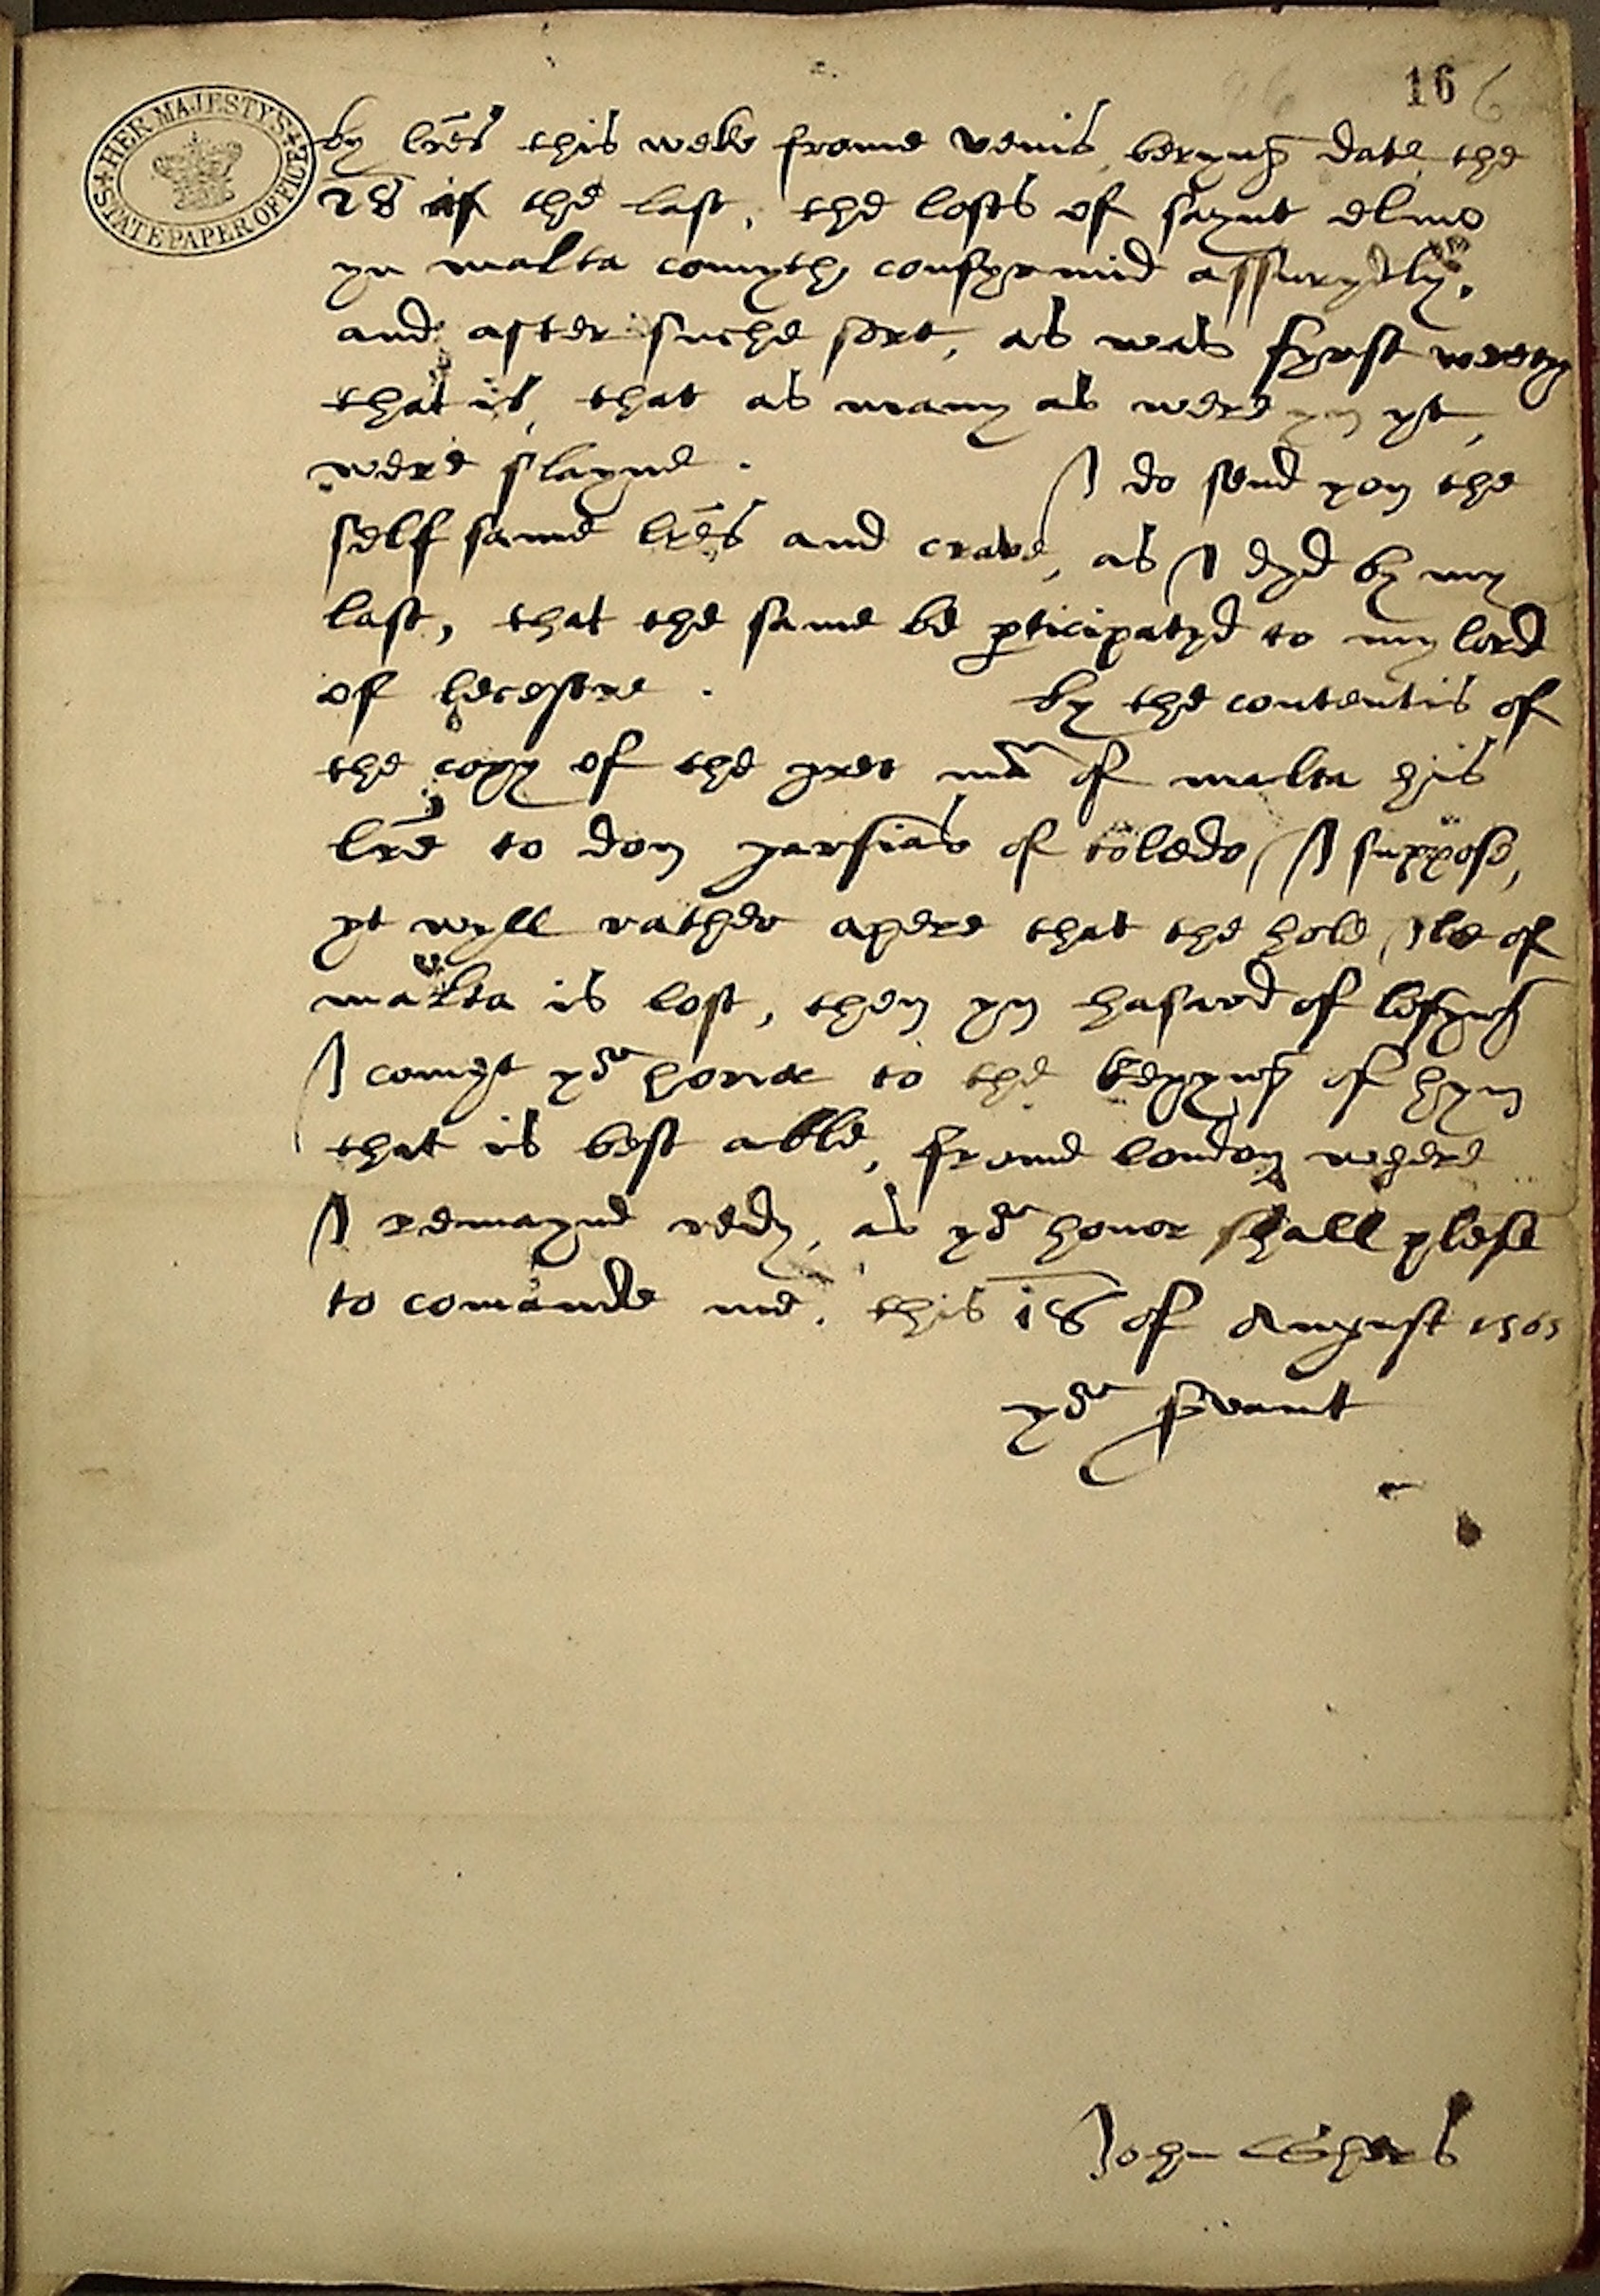 16 6
HER MAJESTY'S STATE PAPER OFFICE
by lres this weke frome venis, beryng date the
28 of the last, the losts of saynt elmo
yn malta comyth confyrmid assurydly,
and after suche sort, as was fyrst
that is, that as many as were yn yt,
were slayne. I do send you the
self same lres and crave, as I dyd by my
last, that the same be pticipatyd to my lord
of lecestre. by the contentis of
the copy of the gret mr of malta his
lre to don garsia of toledo, I suppose,
yt wyll rather apere that the hole Ile of
malta is lost, then yn hasard of losyng
I comyt yor honor to the kepyng of hym
that is best able, frome london where
I remayne redy, as yor honor shall plese
to comande me. this 18 of August 1565
yor svant
John